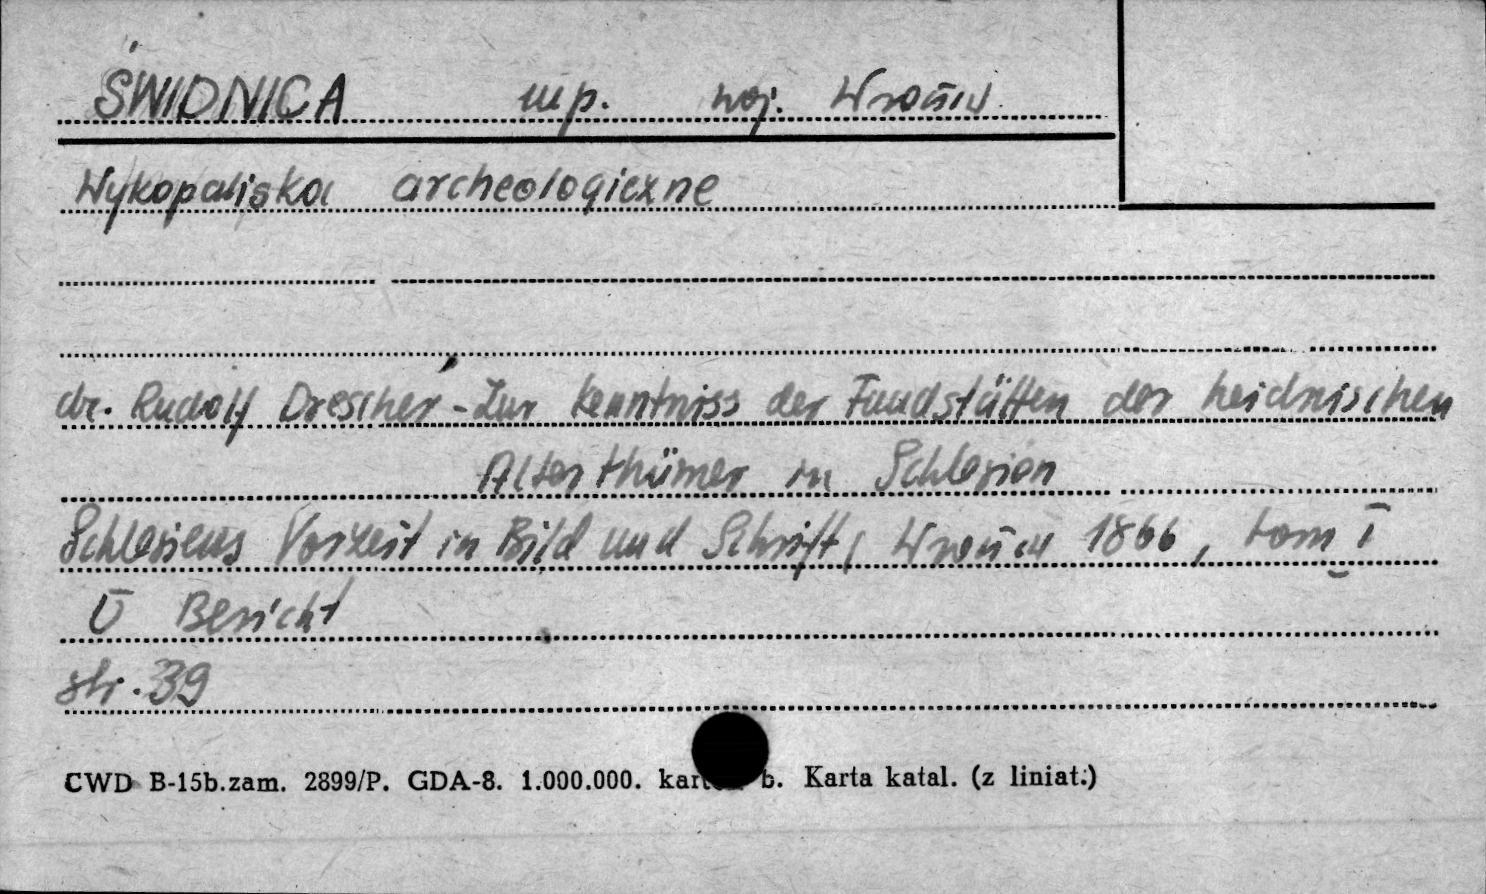 ŚWIDNICA mp. woj. Wrocław
Wykopaliska archeologiczne
dr. Rudolf Drescher - Zur Kenntniss der Fundstätten der heidnischen
Alterthümer in Schlesien
Schlesiens Vorzeit in Bild und Schrift, Wrocław 1866, tom I
Bericht
str. 39
CWD B-15b.zam. 2899/P. GDA-8. 1.000.000. b. Karta katal. (z liniat.)